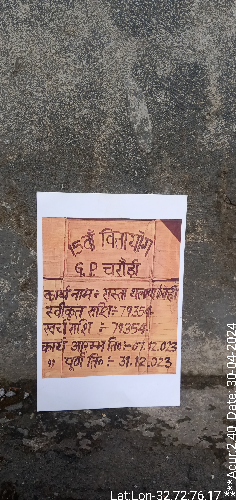 15वाँ वित्तायोग
G.P चरौड़ी
कार्य नाम :- रास्ता
स्वीकृत राशि :- 79354
खर्च राशि :- 79354
कार्य आरम्भ ति० :- 01.12.023
,, पूर्ण ति० :- 31.12.023
Lat Lon-32.72:76.17***Acur:2.40 Date. 30-04-2024